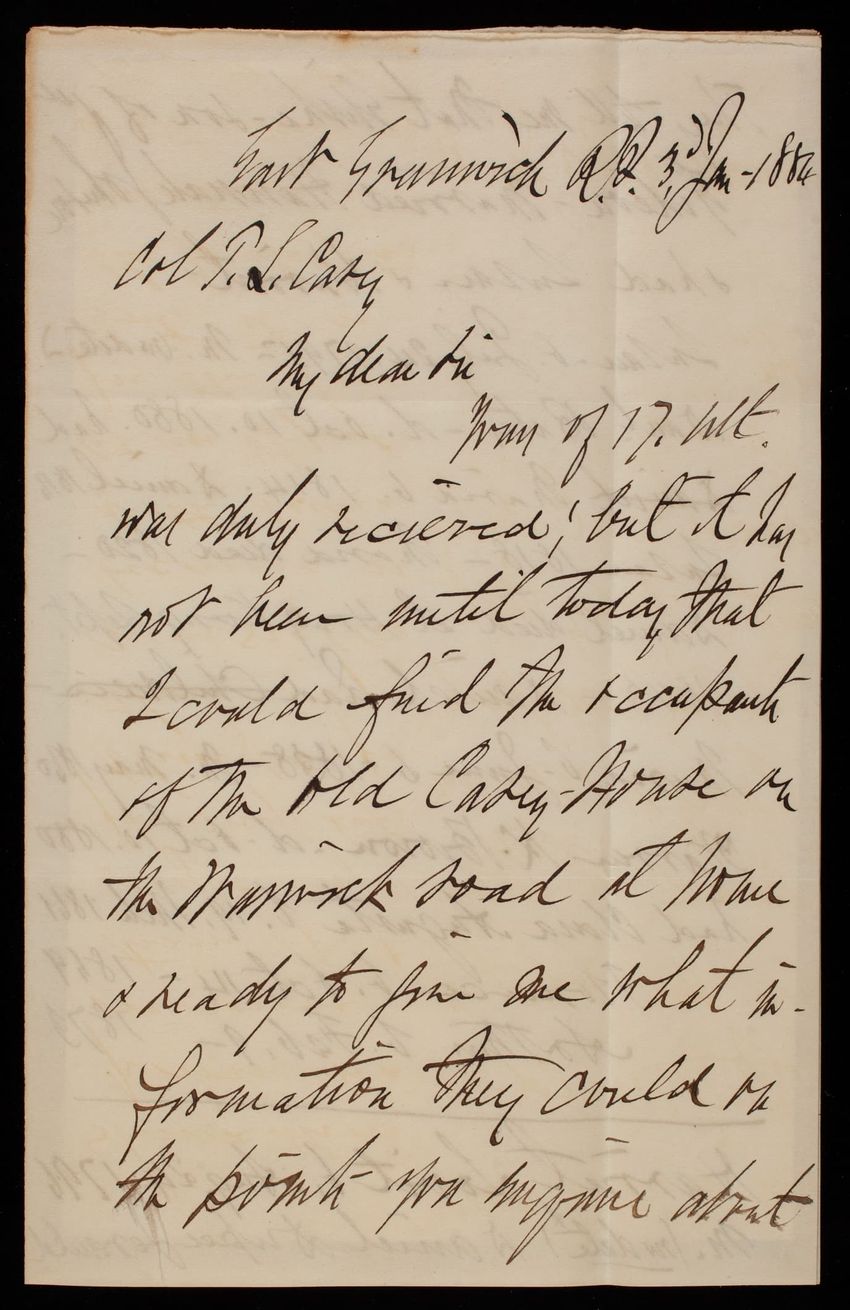 East Greenwich R.I. 3d Jan - 1884
Col T. L. Casey
My dear Sir
Yours of 17. ult.
was duly recieved; but it has
not been until today that
I could find the occupants
of the Old Casey-House on
the Warwick road at home
& ready to give me what in-
formation they could on
the points you inquire about